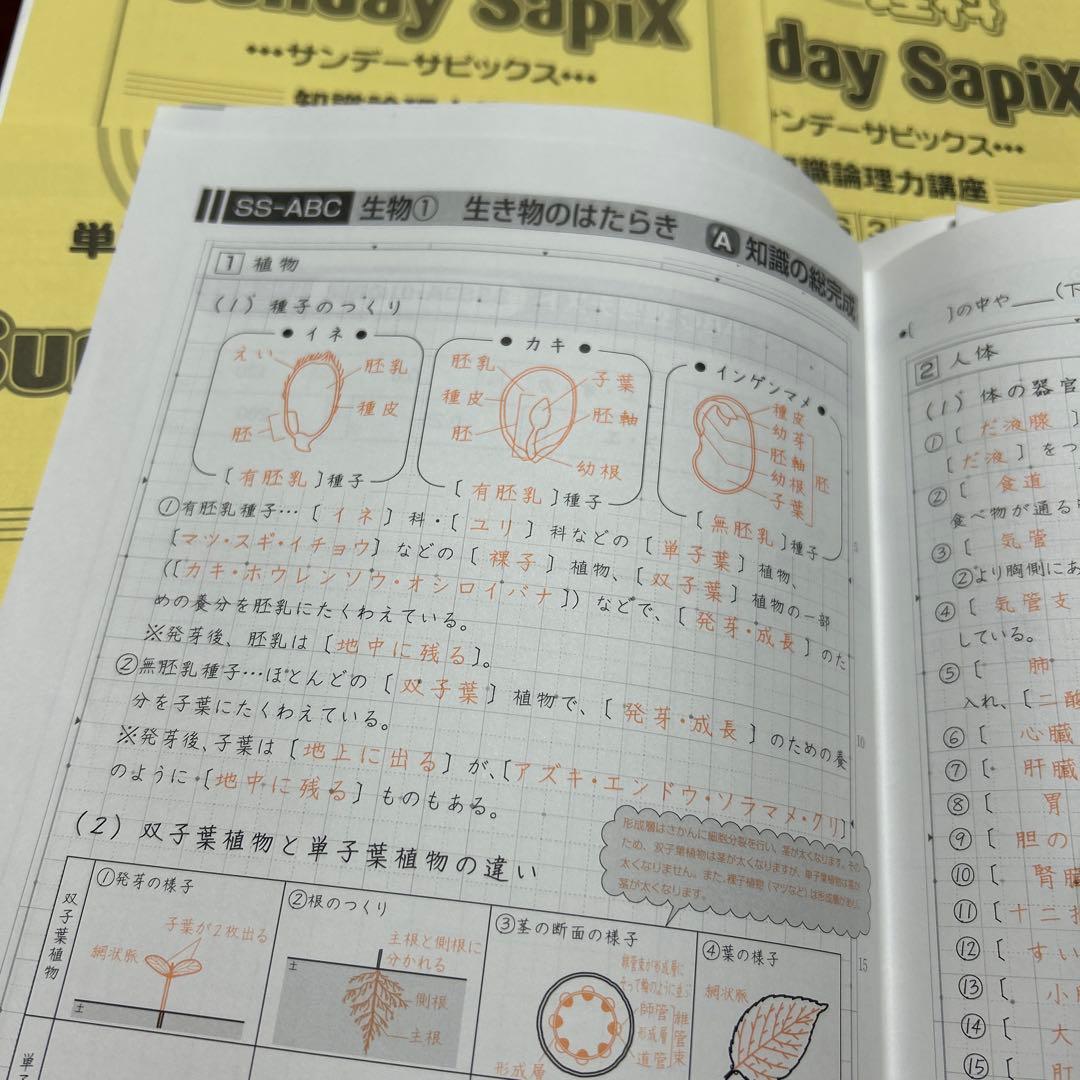 Sunday SapiX
•••サンデーサピックス•••
理科
day SapiX
サンデーサピックス•••
知識論理力講座
単
Sun
SS-ABC 生物① 生き物のはたらき A 知識の総完成
1 植物
(1) 種子のつくり
●イネ●
えい
胚乳
種皮
胚
[有胚乳]種子
●カキ●
胚乳
種皮
胚
子葉
胚軸
幼根
[有胚乳]種子
●インゲンマメ●
種皮
幼芽
胚軸
幼根
子葉
胚
[無胚乳]種子
①有胚乳種子…[イネ]科・[ユリ]科などの[単子葉]植物、
[マツ・スギ・イチョウ]などの[裸子]植物、[双子葉]植物の一部
([カキ・ホウレンソウ・オシロイバナ])などで、[発芽・成長]のた
めの養分を胚乳にたくわえている。
※発芽後、胚乳は[地中に残る]。
②無胚乳種子…ほとんどの[双子葉]植物で、[発芽・成長]のための養
分を子葉にたくわえている。
※発芽後、子葉は[地上に出る]が、[アズキ・エンドウ・ソラマメ・クリ]
のように[地中に残る]ものもある。
(2) 双子葉植物と単子葉植物の違い
形成層はさかんに細胞分裂を行い、茎が太くなります。その
ため、双子葉植物は茎が太くなりますが、単子葉植物は茎が
太くなりません。また、裸子植物(マツなど)は形成層があり、
茎が太くなります。
双子葉植物
①発芽の様子
子葉が2枚出る
網状脈
土
②根のつくり
主根と側根に
分かれる
土
側根
主根
③茎の断面の様子
維管束が形成層に
そって輪のように並ぶ
師管
形成層
道管
維管束
形成層
④葉の様子
網状脈
単子
5
10
15
●[ ]の中や___(下
2 人体
(1) 体の器官
①[だ液腺]
[だ液]をつ
②[食道
食べ物が通る
③[気管
②より胸側にあ
④[気管支
している。
⑤[肺
入れ、[二酸
⑥[心臓
⑦[肝臓
⑧[胃
⑨[胆の
⑩[腎臓
⑪[十二指
⑫[すい
⑬[小
⑭[大
⑮[肛